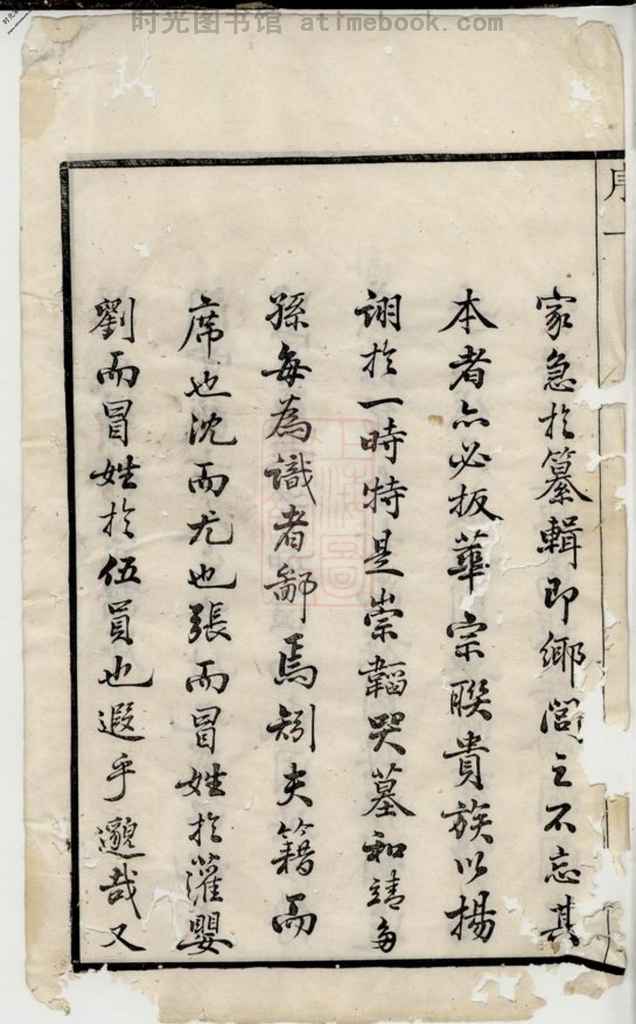 时光图书馆 atimebook.com
序一
家急於纂輯即鄉閭之不忘其
本者亦必扳華宗聯貴族以揚
詡於一時特是崇韜哭墓和靖多
孫每為識者鄙焉矧夫籍而
席也沈而尤也張而冒姓於灌嬰
劉而冒姓於伍員也遐乎邈哉又